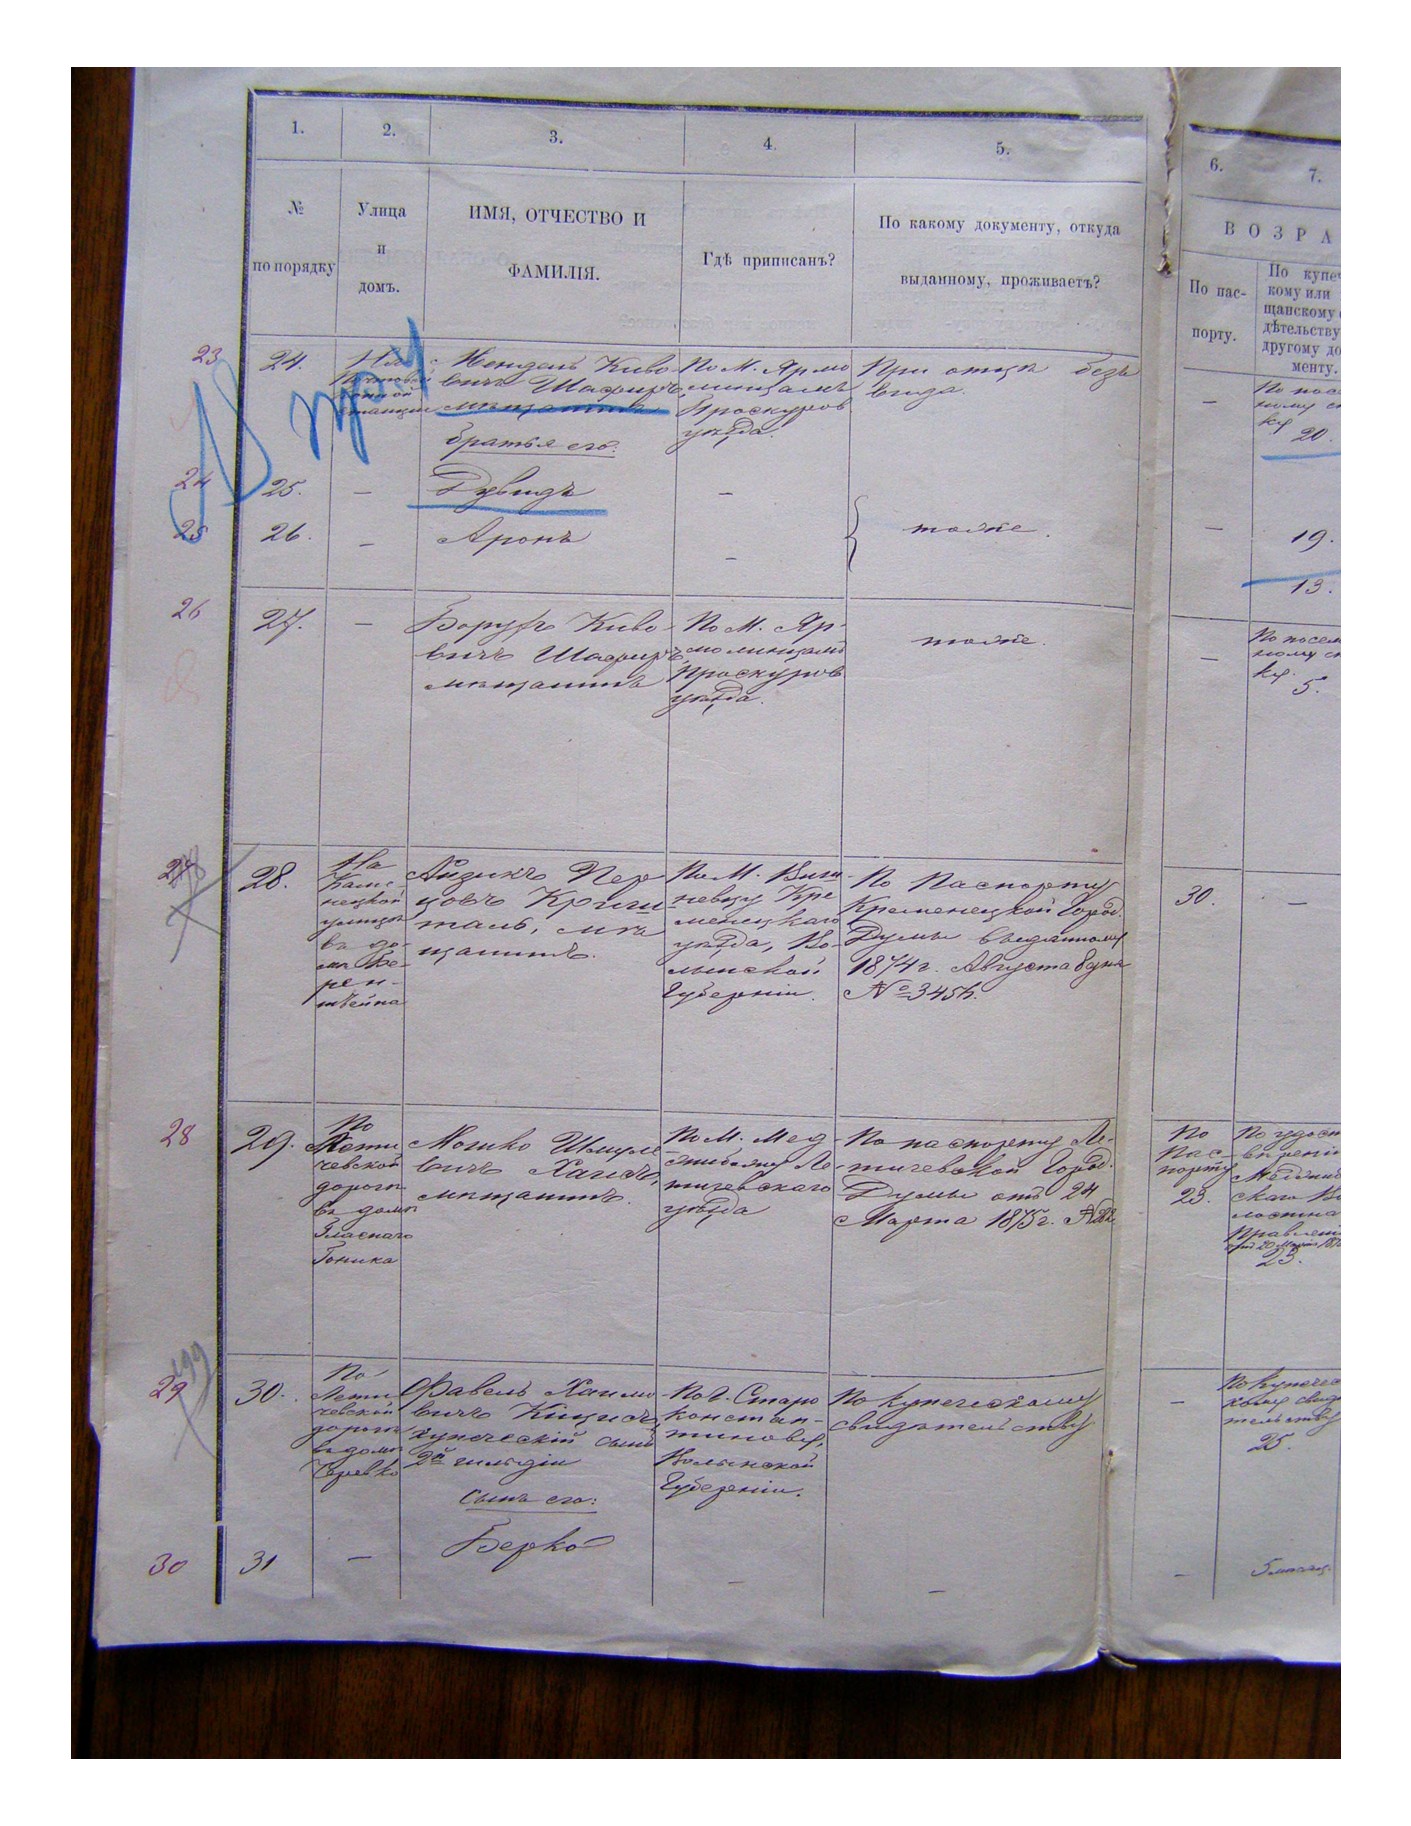 1.
2.
3.
4.
5.
6.
7.
№
по порядку
Улица
и
домъ.
ИМЯ, ОТЧЕСТВО И
ФАМИЛІЯ.
Гдѣ приписанъ?
По какому документу, откуда
выданному, проживаетъ?
ВОЗРА
По пас-
порту.
По купе
кому или
щанскому
дѣтельству
другому до
менту.
23
24.
На
станціи
Мендель Киво-
вичъ Шафиръ,
мѣщанинъ
По М. Ярмо
линцамъ
Проскуров
уѣзда.
При отцѣ безъ
вида.
—
По посе
ному с
ку
20.
братья его:
24
25.
—
Дувидъ
—
25
26.
—
Аронъ
—
тоже.
—
19.
13.
26
27.
—
Борухъ Киво-
вичъ Шафиръ,
мѣщанинъ
По М. Яр-
молинцамъ
Проскуров
уѣзда.
тоже.
—
По посем
ному с
ку.
5.
27
28.
На
Каме-
нецкой
улицѣ
въ до-
мѣ Бе-
рен-
штейна
Айзикъ Пер
цовъ Криш
таль, мѣ
щанинъ.
По М. Виш-
невцу Кре
менецкаго
уѣзда, Во-
лынской
Губерніи.
По Паспорту
Кременецкой Город.
Думы выданному
1874 г. Августа 8 дня
30.
—
28
29.
По
Лети
чевской
дорогѣ
въ домѣ
Гоника
Мошко Шмуле
вичъ
мѣщанинъ.
По М. Мед-
жибожу Ле-
тичевскаго
уѣзда
По паспорту Ле-
тичевской Город.
Думы отъ 24
Марта 1875 г.
По
Пас-
порту
23.
По удост
вѣренію
скаго Во
лостна
Правлені
23.
29
199
30.
По
Лети
чевской
дорогѣ
въ домѣ
Фавель Хаимо
вичъ Кицисъ,
купеческій сынъ
2й гильдіи
По г. Старо
констан-
тинову,
Волынской
Губерніи.
По купеческому
свидѣтельству
—
По купечес
кому свид
тельству
25.
Сынъ его:
30
31
—
Берко
—
—
—
5 мѣсяц.